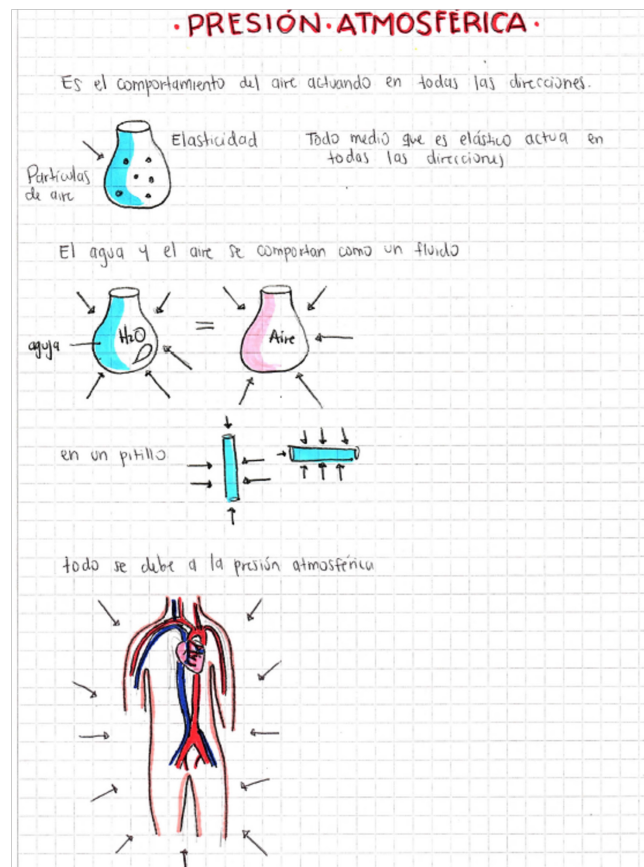 ·PRESIÓN·ATMOSFÉRICA·
Es el comportamiento del aire actuando en todas las direcciones.
Elasticidad
Todo medio que es elástico actua en
todas las direcciones
Partículas
de aire
El agua y el aire se comportan como un fluido
aguja
H2O
=
Aire
en un pitillo
todo se debe a la presión atmosférica